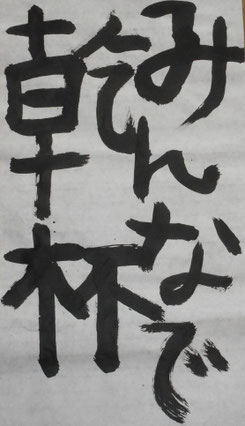 みんなで
乾杯